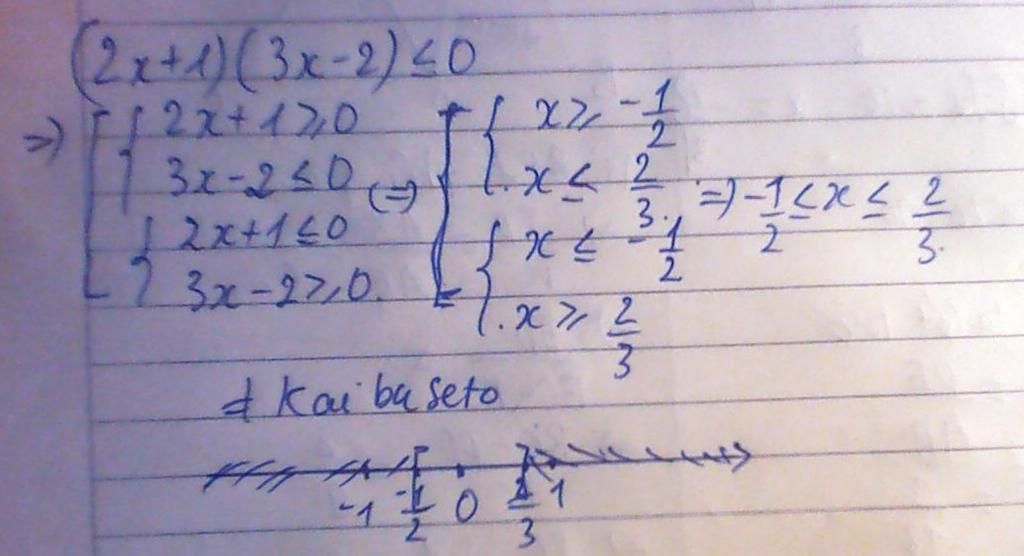 (2x+1)(3x-2) ≤ 0
=> [ { 2x+1 ≥ 0 3x-2 ≤ 0 { 2x+1 ≤ 0 3x-2 ≥ 0. (=) [ { x ≥ -1/2 x ≤ 2/3. { x ≤ -1/2 x ≥ 2/3 => -1/2 ≤ x ≤ 2/3.
Kaibaseto
-1 -1/2 0 2/3 1